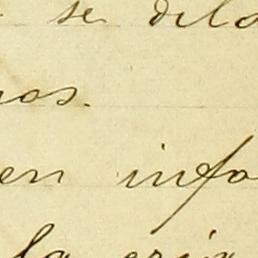 se dila
nos.
en info
la cria